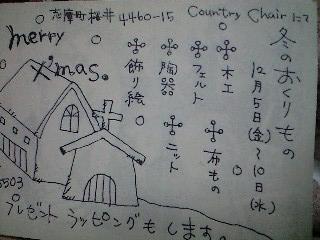 志摩町桜井4460-15 Country Chairにて
merry
X'mas。
冬のおくりもの
12月5日(金)~10日(水)
木工
フェルト
陶器
飾り絵
布もの
ニット
5503
プレゼント ラッピングもします。